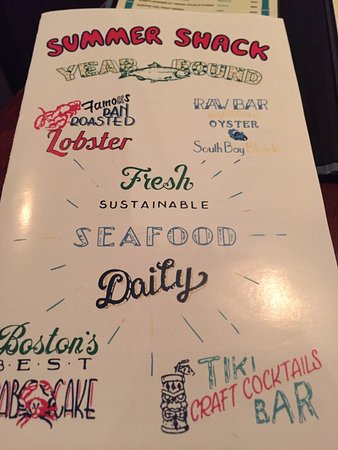 SUMMER SHACK
YEAR ROUND
Famous
PAN
ROASTED
Lobster
RAW BAR
OYSTER
South Bay Blonde
Fresh
SUSTAINABLE
SEAFOOD
Daily
Boston's
BEST
AB CAKE
TIKI
CRAFT COCKTAILS
BAR